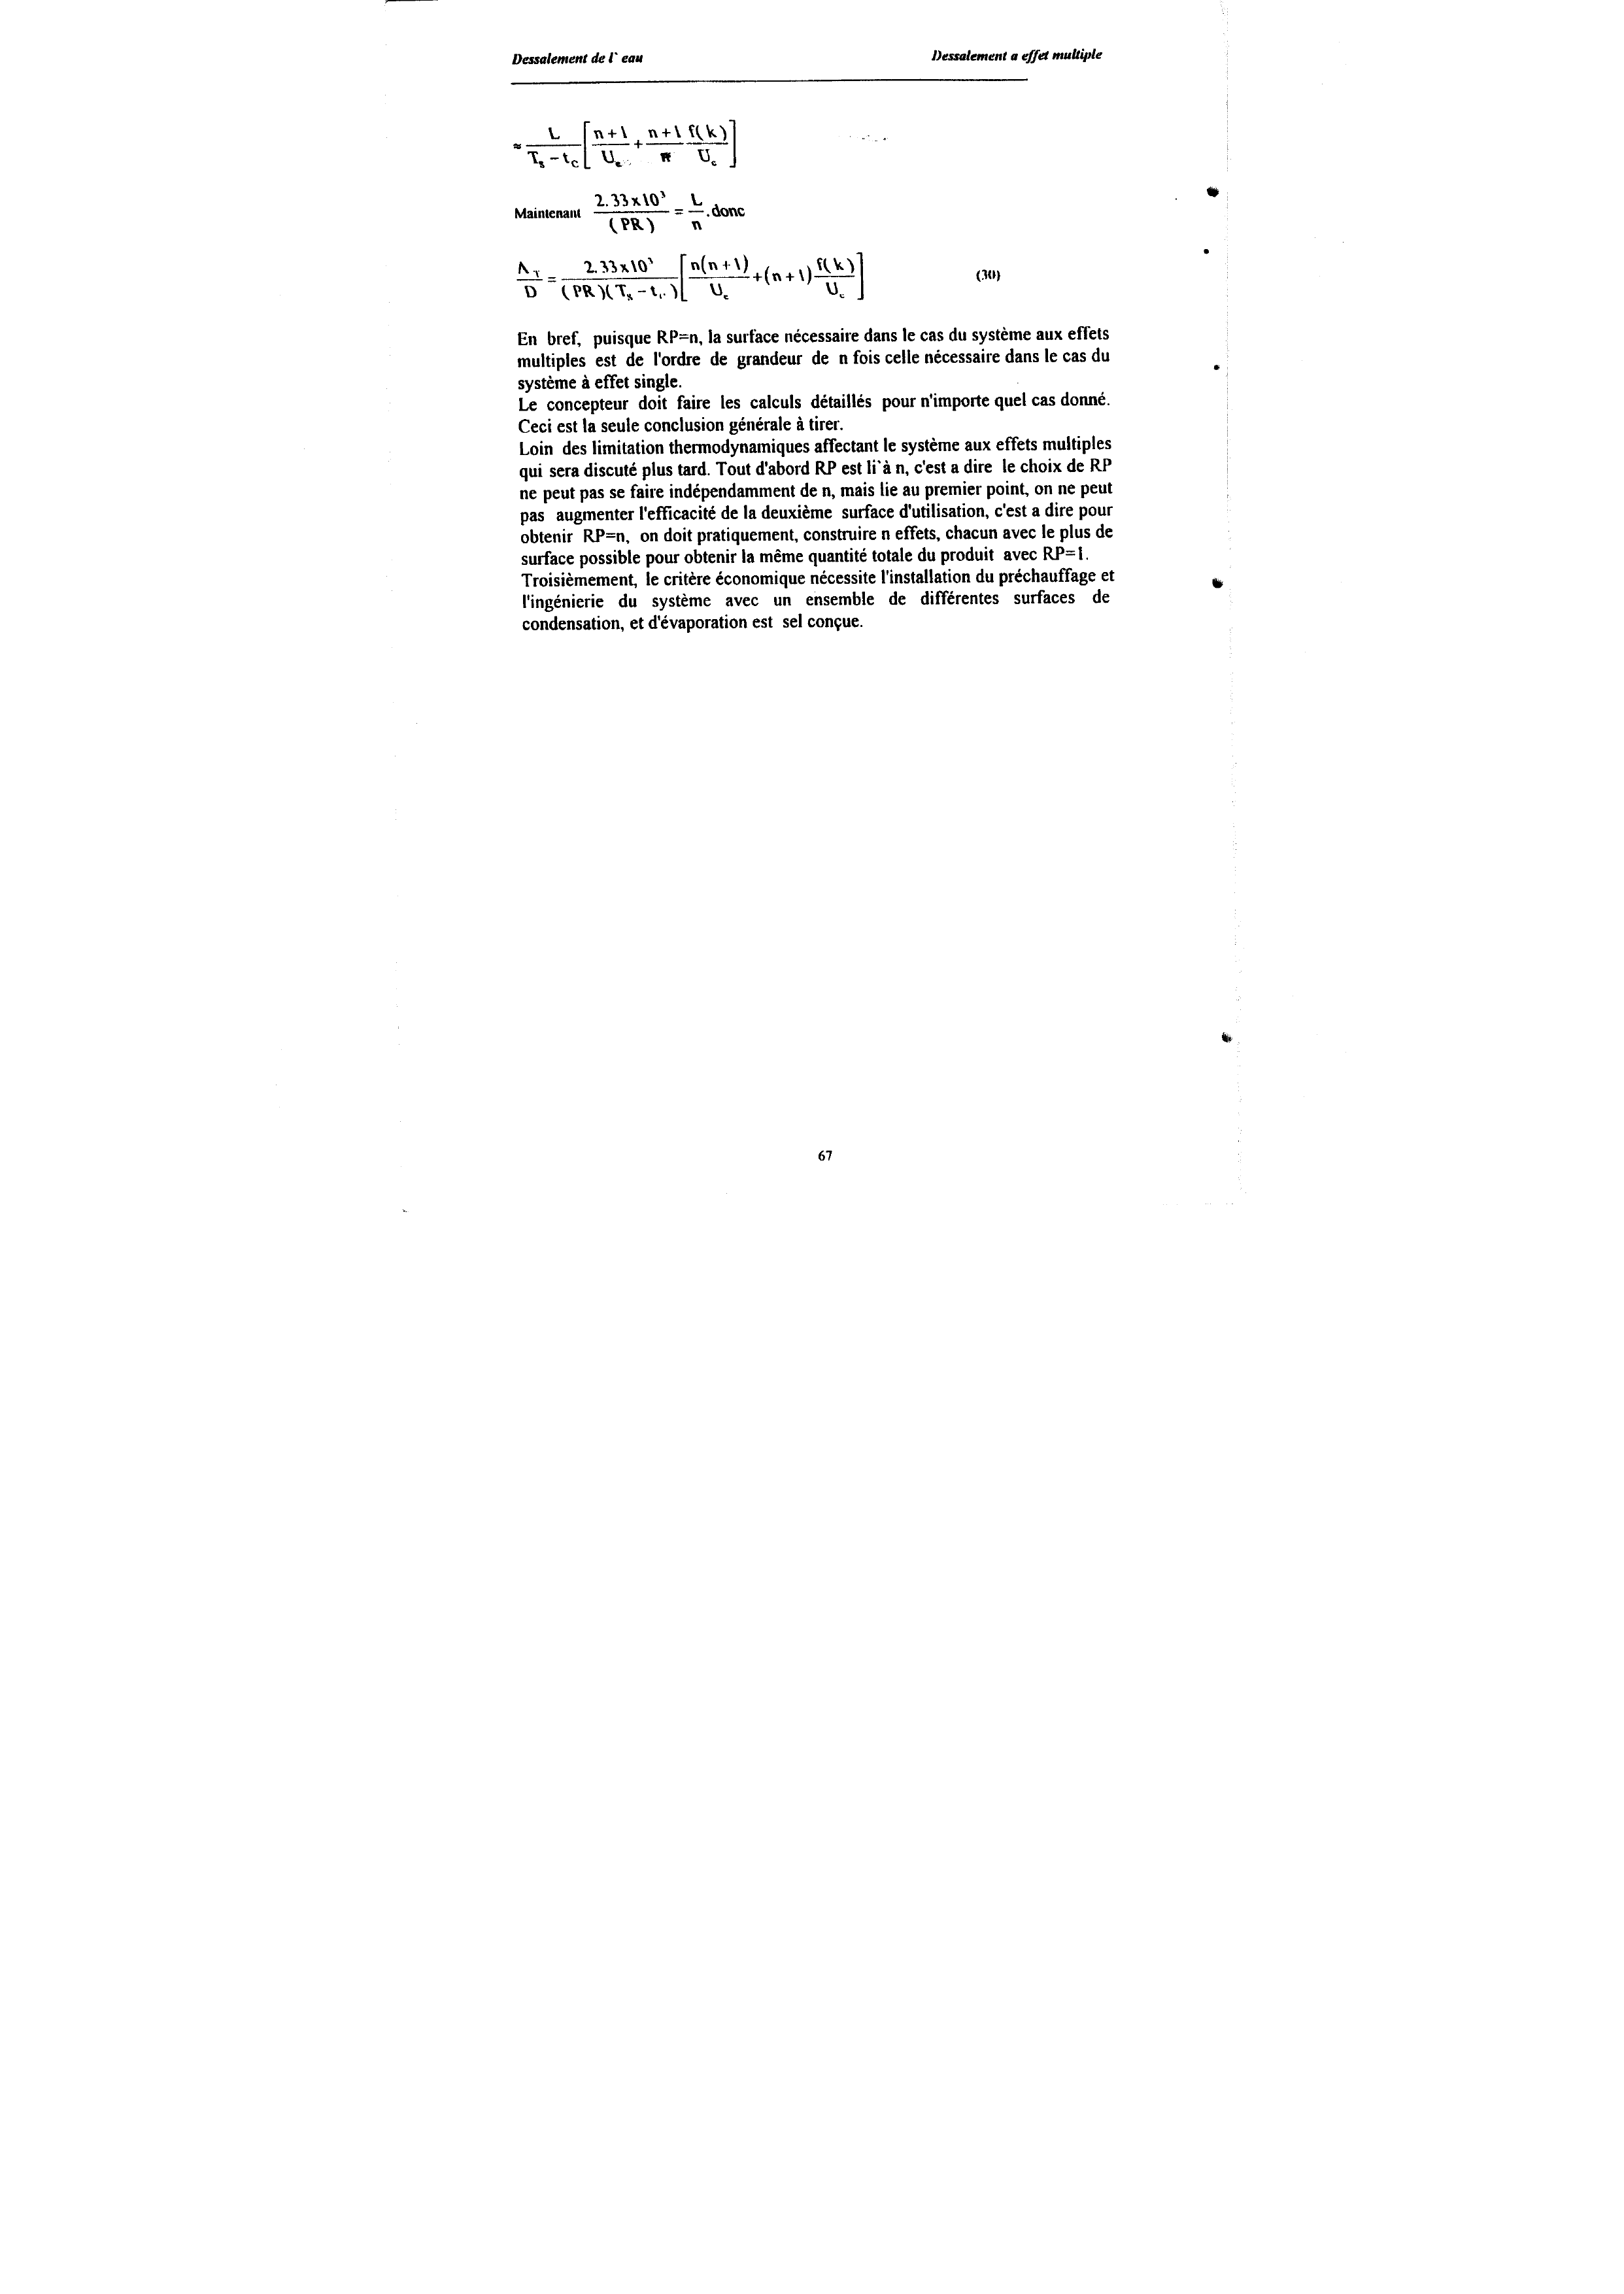 Dessalement de l` eau Dessalement a effet multiple
≈ L / (T_s − t_c) [ (n+1)/U_e + (n+1)/n f(k)/U_c ]
Maintenant 2.33x10³/(PR) = L/n . donc
A_T/D = 2.33x10³/((PR)(T_s − t_c)) [ n(n+1)/U_e + (n+1) f(k)/U_c ] (30)
En bref, puisque RP=n, la surface nécessaire dans le cas du système aux effets
multiples est de l'ordre de grandeur de n fois celle nécessaire dans le cas du
système à effet single.
Le concepteur doit faire les calculs détaillés pour n'importe quel cas donné.
Ceci est la seule conclusion générale à tirer.
Loin des limitation thermodynamiques affectant le système aux effets multiples
qui sera discuté plus tard. Tout d'abord RP est li`à n, c'est a dire le choix de RP
ne peut pas se faire indépendamment de n, mais lie au premier point, on ne peut
pas augmenter l'efficacité de la deuxième surface d'utilisation, c'est a dire pour
obtenir RP=n, on doit pratiquement, construire n effets, chacun avec le plus de
surface possible pour obtenir la même quantité totale du produit avec RP=1.
Troisièmement, le critère économique nécessite l'installation du préchauffage et
l'ingénierie du système avec un ensemble de différentes surfaces de
condensation, et d'évaporation est sel conçue.
67